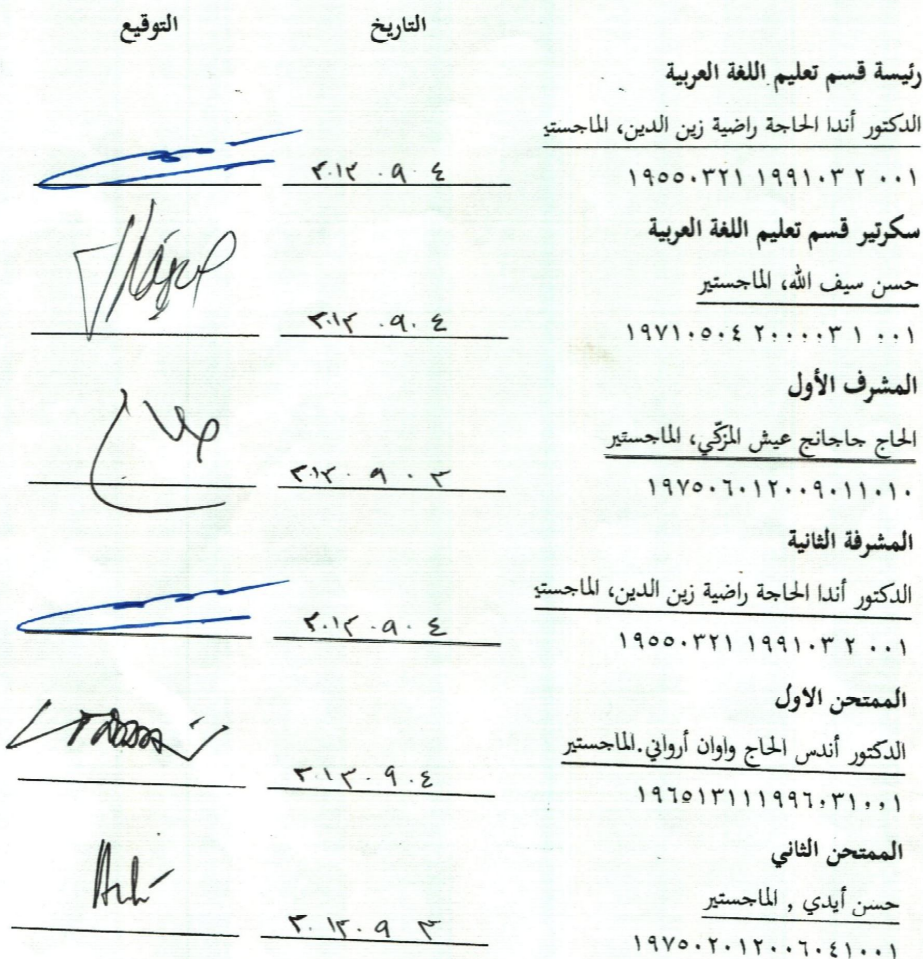 التاريخ التوقيع
رئيسة قسم تعليم اللغة العربية
الدكتور أندا الحاجة راضية زين الدين، الماجستير
١٩٥٥٠٣٢١ ١٩٩١٠٣ ٢ ٠٠١ ٢٠١٣ ٠٩٠٤
سكرتير قسم تعليم اللغة العربية
حسن سيف الله، الماجستير
١٩٧١٠٥٠٤ ٢٠٠٠٠٣ ١ ٠٠١ ٢٠١٣ ٠٩٠٤
المشرف الأول
الحاج جاجانج عيش المزكّي، الماجستير
١٩٧٥٠٦٠١٢٠٠٩٠١١٠١٠ ٢٠١٣٠ ٩ ٠ ٣
المشرفة الثانية
الدكتور أندا الحاجة راضية زين الدين، الماجستي
١٩٥٥٠٣٢١ ١٩٩١٠٣ ٢ ٠٠١ ٢٠١٣ ٠٩٠ ٤
الممتحن الاول
الدكتور أندس الحاج واوان أرواني.الماجستير
١٩٦٥١٣١١١٩٩٦٠٣١٠٠١ ٢٠١٣٠٩٠٤
الممتحن الثاني
حسن أيدي , الماجستير
١٩٧٥٠٢٠١٢٠٠٦٠٤١٠٠١ ٢٠١٣٠٩ ٣